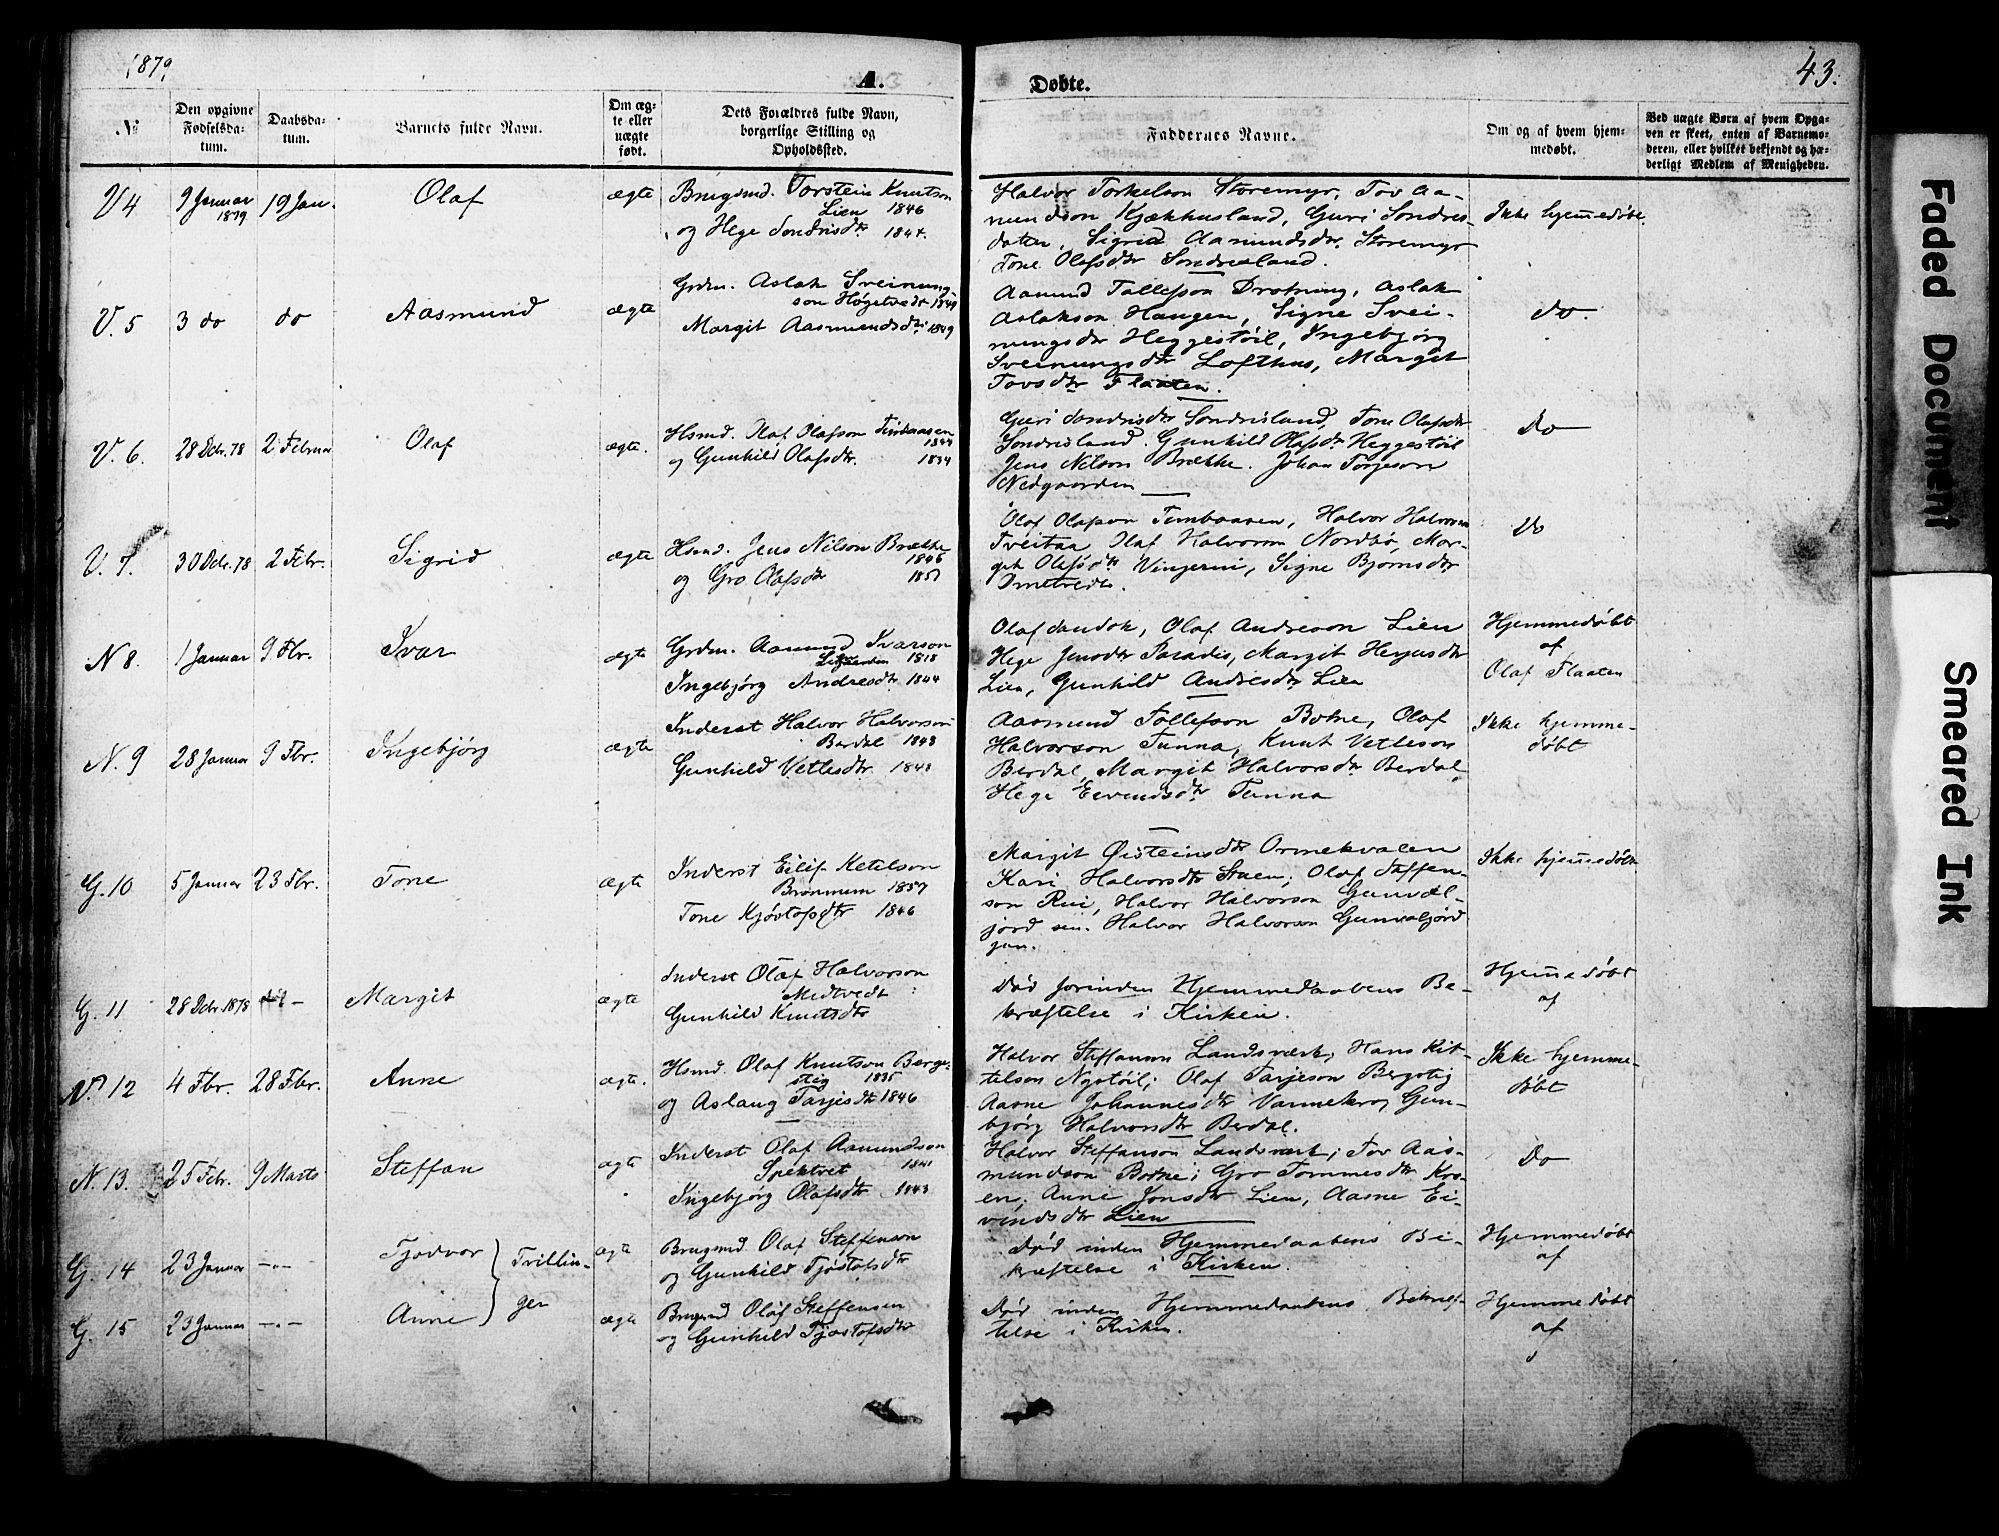 1879
A.
Døbte.
43.
№
Den opgivne Fødselsdatum.
Daabsdatum.
Barnets fulde Navn.
Om ægte eller uægte født.
Dets Forældres fulde Navn, borgerlige Stilling og Opholdssted.
Faddernes Navne.
Om og af hvem hjemmedøbt.
Ved uægte Børn af hvem Opgaven er skeet, enten af Barnemoderen, eller hvilket bekjendt og hæderligt Medlem af Menigheden.
V 4
9 Januar 1879
19 Jan.
Olaf
ægte
Brugsmd. Torstein Knutson
Lien 1846
og Hege Sondrisdtr 1844.
Halvor Torkelson Storemyr, Tov Aa-
mundson Kjækhusland, Guri Sondres-
datter, Sigrid Aasmundsdr. Storemyr
Tone Olafsdtr Sondresland.
Ikke hjemmedøbt.
V. 5
3 do
do
Aasmund
ægte
Grdm. Aslak Sveinung-
son Høgetvedt 1849
Margit Aasmundsdtr 1849
Aamund Tallefson Drotning, Aslak
Aslakson Haugen, Signe Svei-
nungsdtr Heggestøil, Ingebjørg
Sveinungsdtr Lofthus, Margit
Tovsdtr Flaaten.
do.
V. 6.
28 Dcbr. 78
2 Februar
Olaf
ægte.
Hsmd. Olaf Olafson Timbaasen
1844
og Gunhild Olafsdtr. 1834
Guri Sondrisdtr Sondrisland, Tone Olafsdtr
Sondrisland. Gunhild Olafsdtr Heggestøil
Jens Nilson Brække. Johan Torjeson
Nedgaarden
Do
V. 7.
30 Dcbr. 78
2 Febr.
Sigrid
ægte
Hsmd. Jens Nilson Brække
1846
og Gro Olafsdtr 1851
Olaf Olafson Timbaasen, Halvor Halvorson
Tveitaa, Olaf Halvorson Nordbø, Mar-
git Olafsdtr Vinjerui, Signe Bjørnsdtr
Ometvedt.
Do
N 8.
1 Januar
9 Fbr.
Ivar
ægte
Grdm. Aamund Ivarson
1818
Ingebjørg Andresdtr 1844
Olaf Sandok, Olaf Andreson Lien
Hege Jensdtr Paradis, Margit Herjusdtr
Lien, Gunhild Andresdtr Lien
Hjemmedøbt
af
Olaf Flaaten
N. 9
28 Januar
9 Fbr.
Ingebjørg
ægte
Inderst Halvor Halvorson
Berdal 1843
Gunhild Vetlesdtr 1843
Aasmund Tollefson Botne, Olaf
Halvorson Tunna, Knut Vetleson
Berdal, Margit Halvorsdtr Berdal,
Hege Eivindsdtr Tunna
Ikke hjemme-
døbt
G. 10
5 Januar
23 Fbr.
Tone
ægte
Inderst Eilif Ketilson
Brønmum 1857
Tone Kjøstofsdtr 1846
Margit Øisteinsdtr Ormekvalen
Kari Halvorsdtr Staen; Olaf Staffen-
son Rui, Halvor Halvorson Gunval-
jord sen. Halvor Halvorson Gunvaljord
jun.
Ikke hjemmedøbt
G. 11
28 Dcbr. 1878
Margit
ægte
Inderst Olaf Halvorson
Midtvedt
Gunhild Knutsdtr
Død forinden Hjemmedaabens Be-
kræftelse i Kirken.
Hjemmedøbt
af
N. 12
4 Fbr.
28 Fbr.
Anne
ægte.
Hsmd. Olaf Knutson Berge-
stig 1835
og Aslaug Tarjesdtr 1846
Halvor Steffanson Landsværk, Hans Kit-
telson Nystøil; Olaf Tarjeson Bergstig
Aasne Johannesdtr Varmekro, Gun-
bjørg Halvorsdtr Berdal.
Ikke hjemme-
døbt
N. 13.
25 Febr.
9 Marts
Steffan
ægte
Inderst Olaf Aamundson
Spektvet 1841
Ingebjørg Olafsdtr 1843
Halvor Steffanson Landsværk; Tov Aas-
mundson Botne; Gro Tommesdtr Kos-
en, Anne Jonsdtr Lien, Aasne Ei-
vindsdtr Lien
Do
G. 14
23 Januar
-"-
Tjodvor
Tvillin-
ægte
Brugsmd Olaf Steffenson
og Gunhild Tjøstofsdtr
Død inden Hjemmedaabens Be-
kræftelse i Kirken.
Hjemmedøbt
af
G. 15
23 Januar
-"-
Anne
ger
ægte
Brugsmd Olaf Steffensen
og Gunhild Tjøstofsdtr
Død inden Hjemmedaabens Bekræf-
telse i Kirken.
Hjemmedøbt
af
Faded Document
Smeared Ink